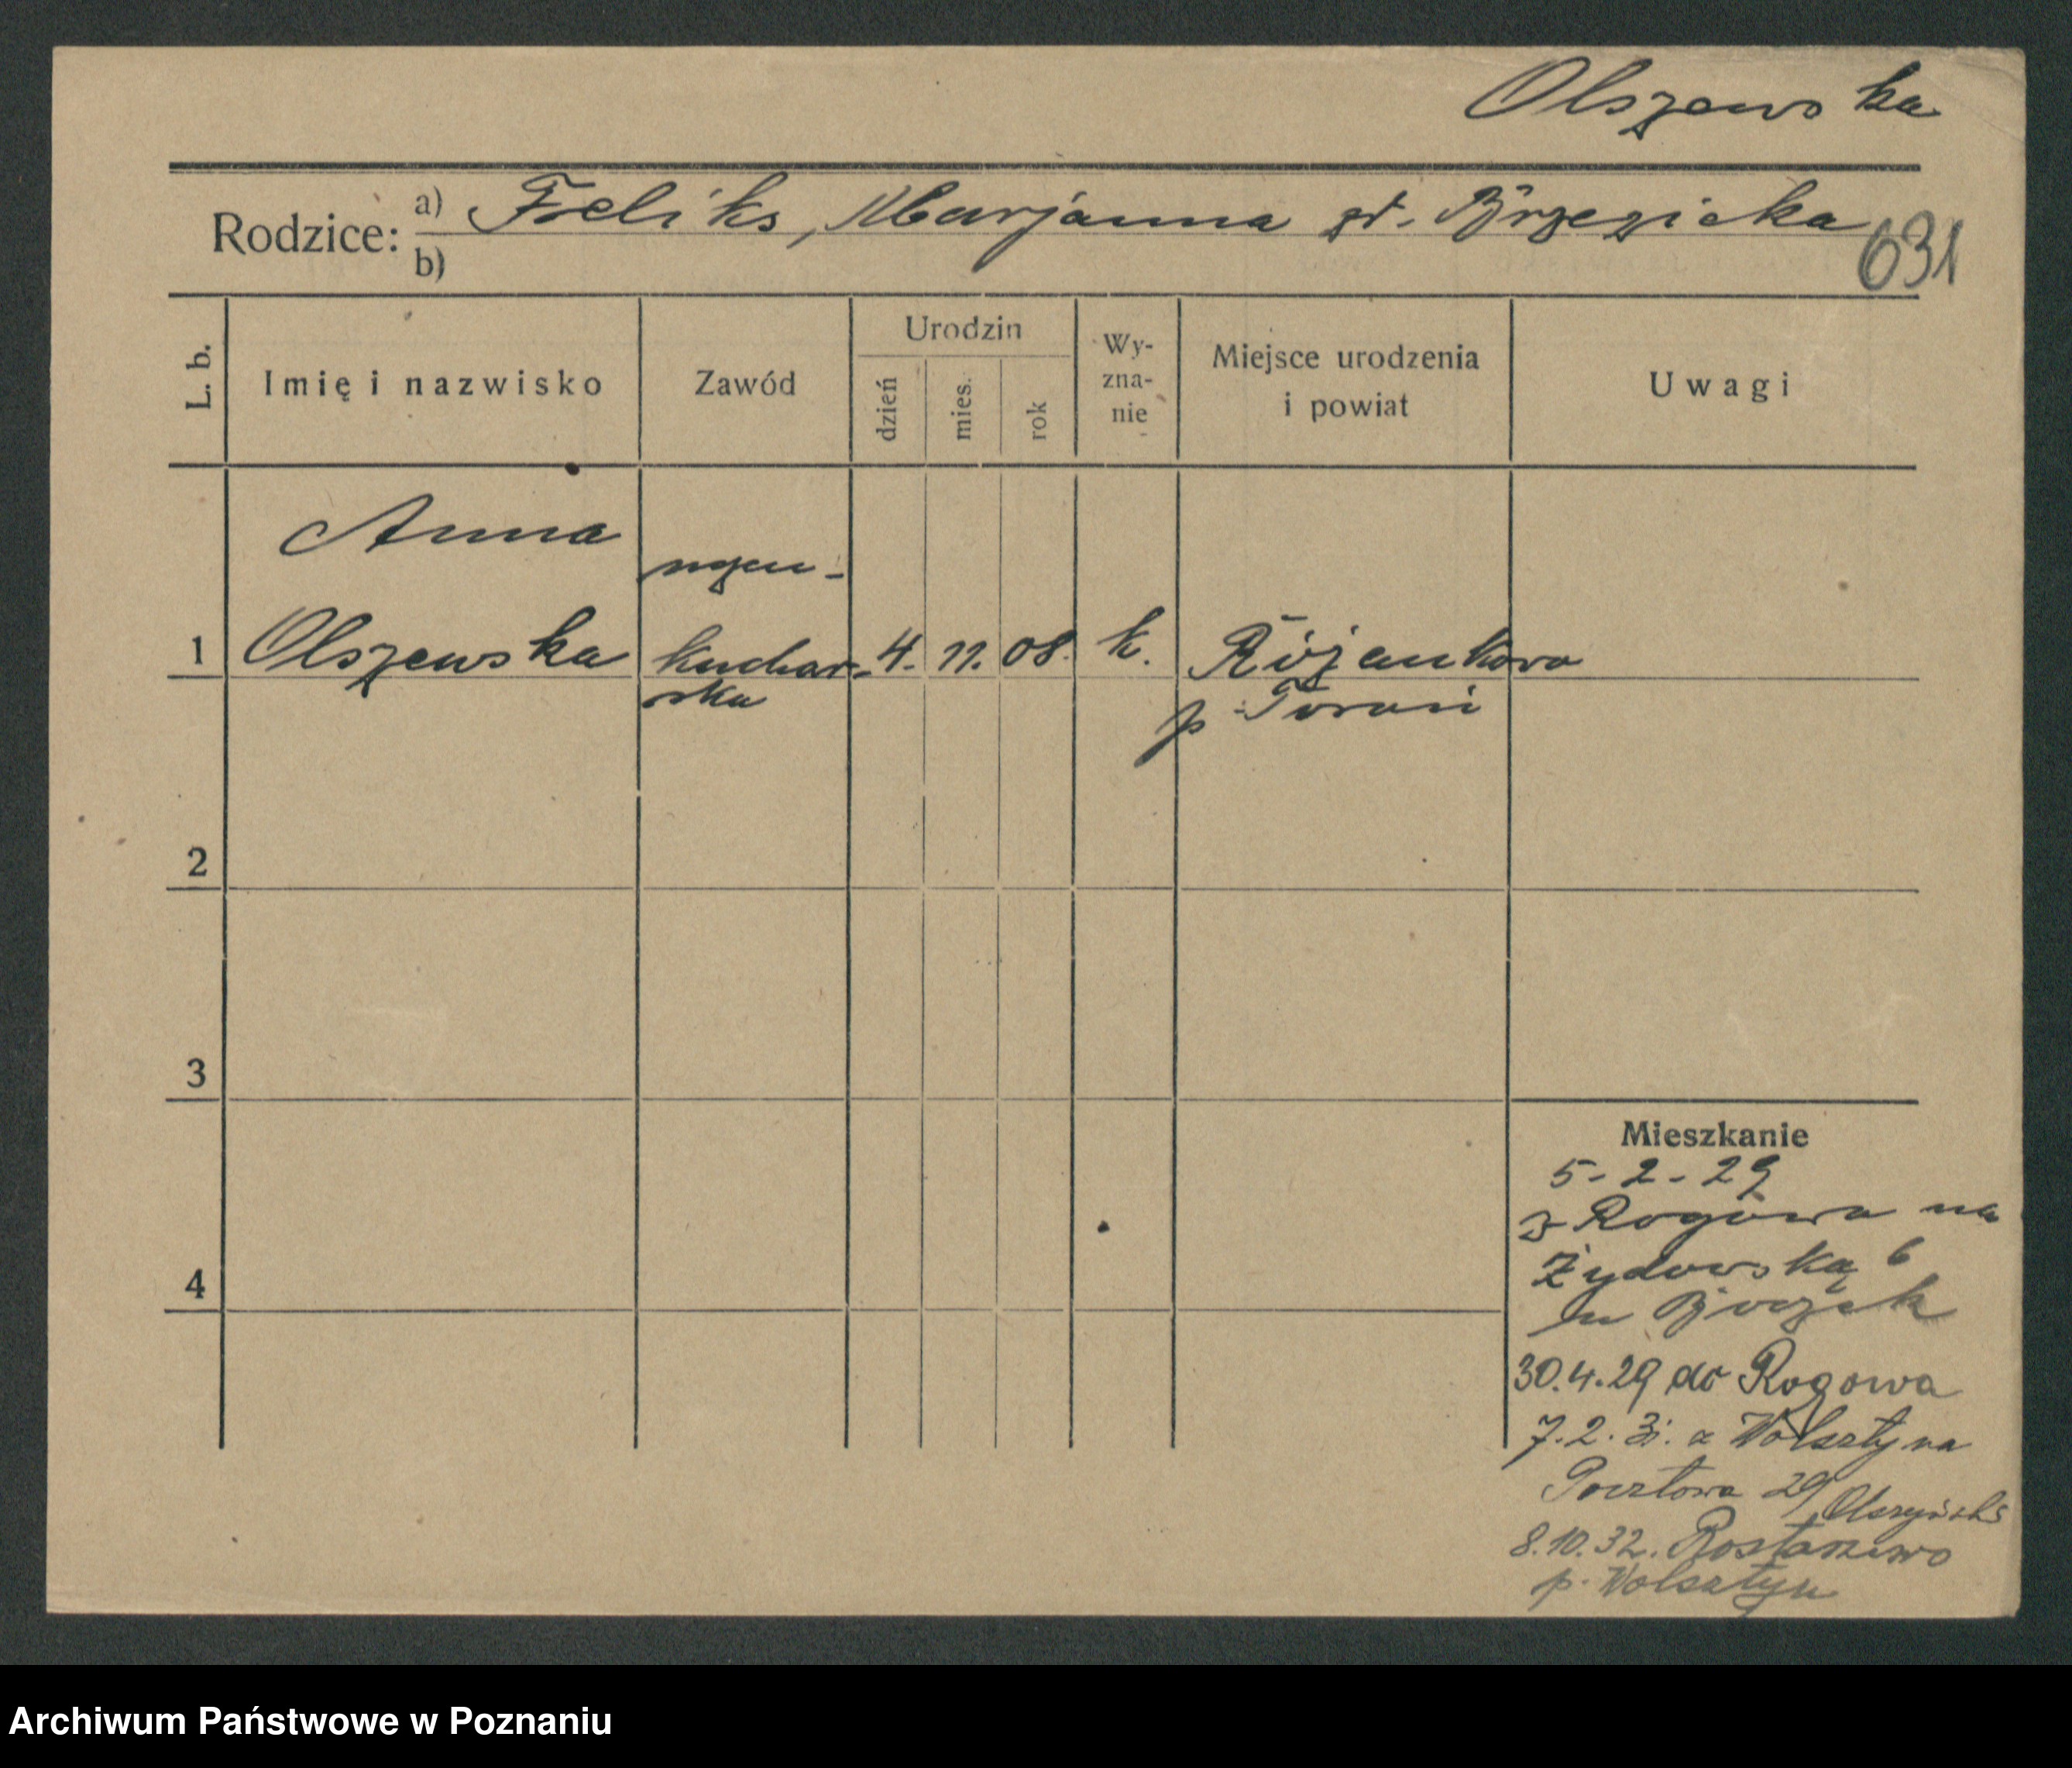 Olszewska
Rodzice: a) Feliks, Marjanna zd. Brzezicka
b)
631
L. b.
Imię i nazwisko
Zawód
Urodzin
dzień
mies.
rok
Wy-
zna-
nie
Miejsce urodzenia
i powiat
Uwagi
Anna
uczen-
1 Olszewska kuchar- 4. 11. 08. k. Różankowo
ska p. Toruń
2
3
4
Mieszkanie
5-2-29
z Rogowa na
Żydowską 6
30.4.29 do Rogowa
7.2.31. z Wolsztyna
Pocztowa 29
8.10.32.
p. Wolsztyn
Archiwum Państwowe w Poznaniu